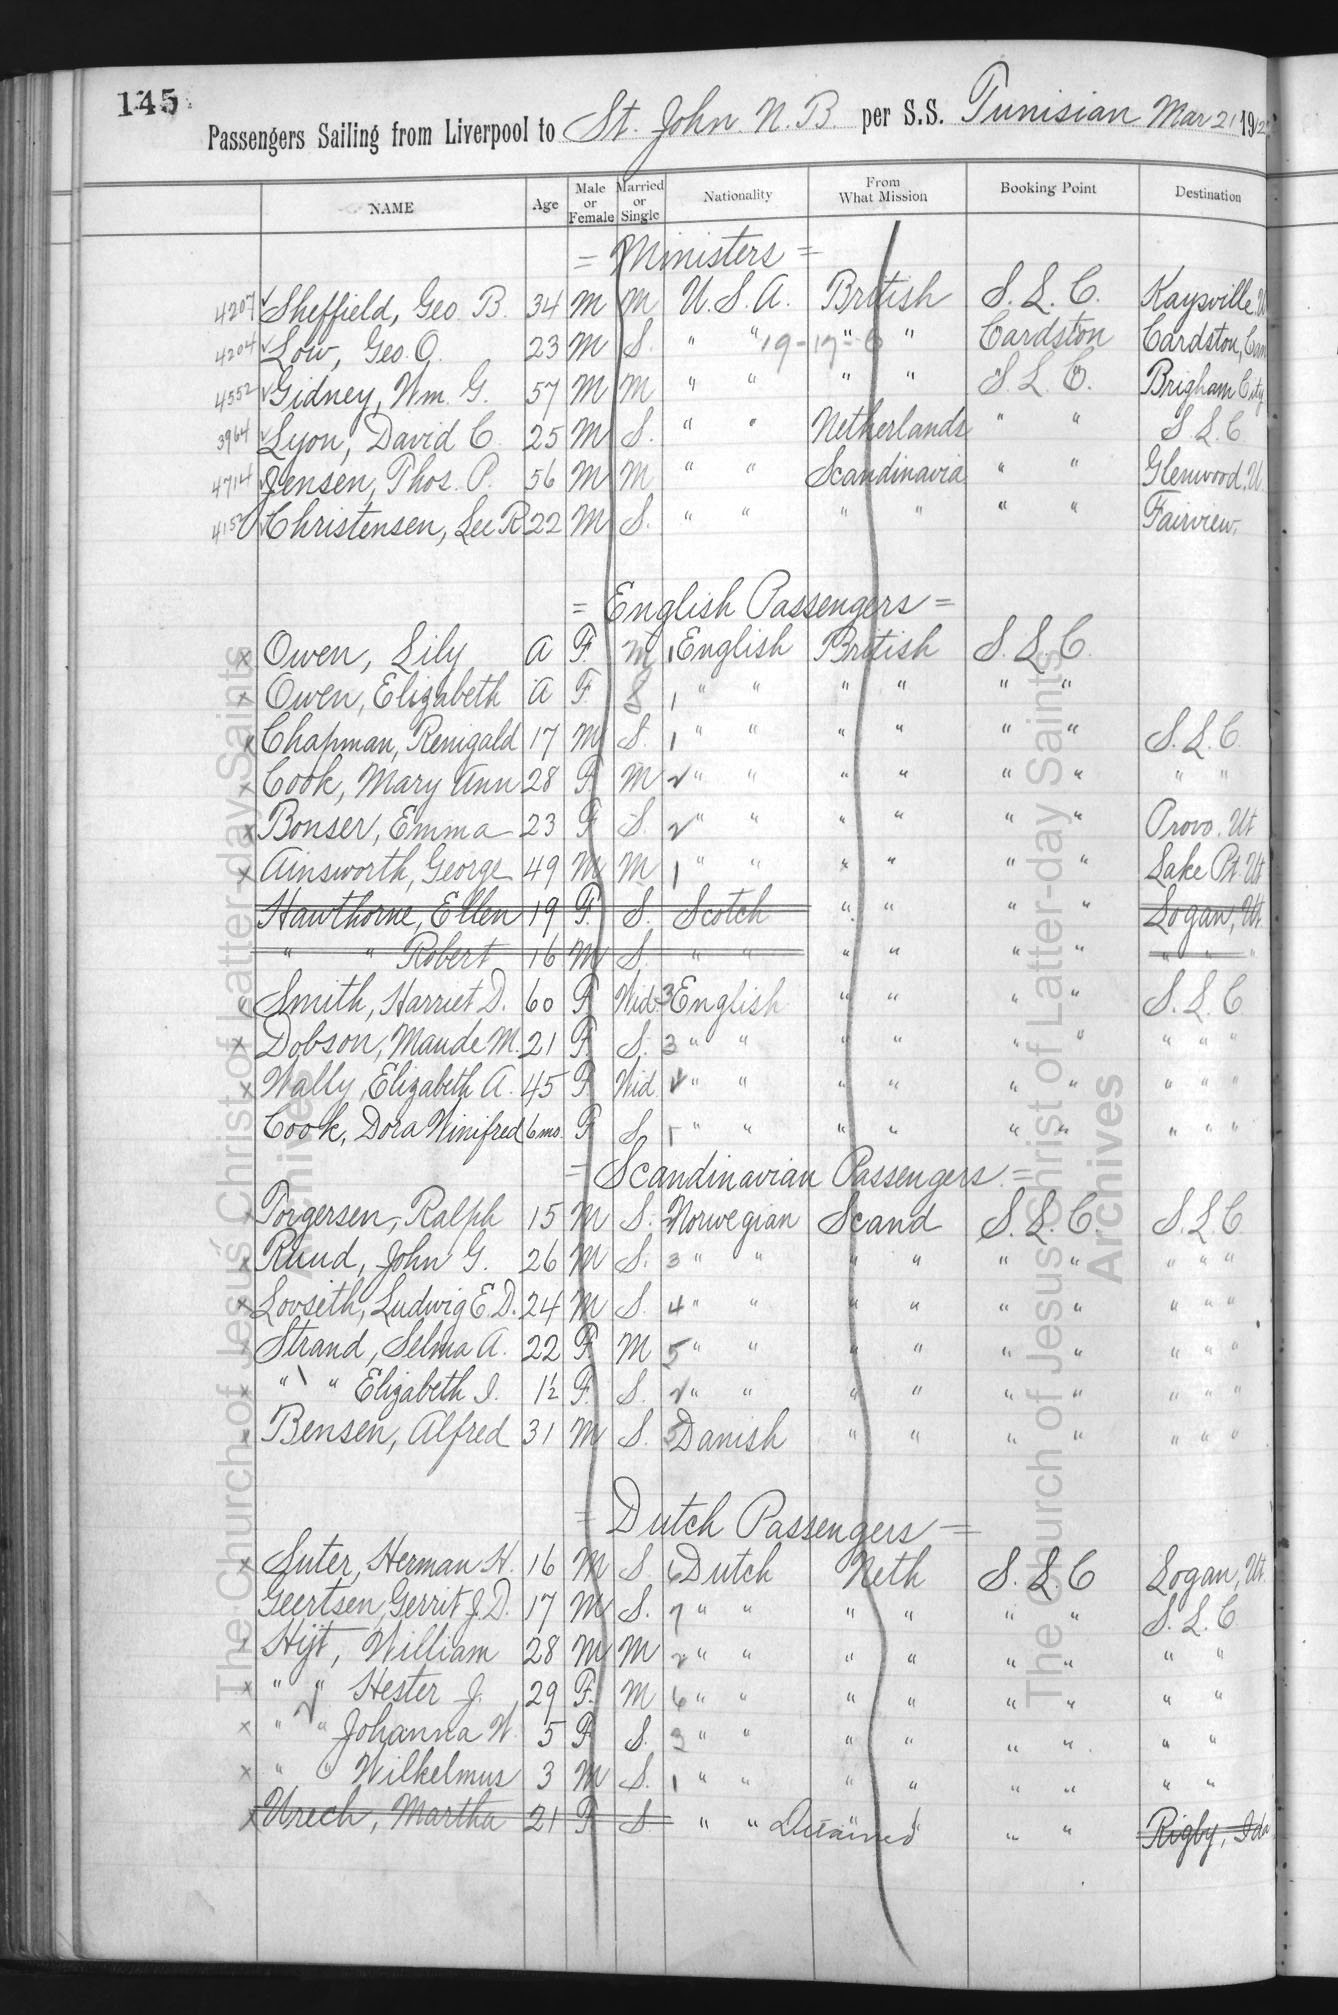 145
Passengers Sailing from Liverpool to St. John N.B. per S.S. Tunisian Mar 21 1912
NAME Age Male or Female Married or Single Nationality From What Mission Booking Point Destination
= Ministers =
4207 ✓ Sheffield, Geo B. 34 M M U.S.A. British S.L.C. Kaysville, U
4204 ✓ Low, Geo. O. 23 M S. " " 19-17-6 " " Cardston Cardston, Can
4552 ✓ Gidney, Wm. G. 57 M M " " " " S.L.C. Brigham City
3964 ✓ Lyon, David C. 25 M S. " " Netherlands " " S.L.C
4714 ✓ Jensen, Thos. P. 56 M M " " Scandinavia " " Glenwood, U.
✓ Christensen, Lee R 22 M S. " " " " " " Fairview,
= English Passengers =
x Owen, Lily A F. M 1 English British S.L.C.
x Owen, Elizabeth A F. 1 " " " " " "
x Chapman, Renigald 17 M S. 1 " " " " " " S.L.C.
x Cook, Mary Ann 28 F. M 2 " " " " " " " "
x Bonser, Emma 23 F S. 2 " " " " " " Provo, Ut
x Ainsworth, George 49 M M 1 " " " " " " Lake Pt. Ut
Hawthorne, Ellen 19 F. S. Scotch " " " " Logan, Ut.
" " Robert 16 M S. " " " " " " " " "
x Smith, Harriet D. 60 F Wid. 3 English " " " " S.L.C
x Dobson, Maude M. 21 F S. 3 " " " " " " " " "
x Wally, Elizabeth A. 45 F. Wid " " " " " " " " "
Cook, Dora Winifred 6 mo. F S. 1 " " " " " " " " "
= Scandinavian Passengers =
x Torgersen, Ralph 15 M S. Norwegian Scand S.L.C S.L.C
x Ruud, John G. 26 M S. 3 " " " " " " " " "
x Lovseth, Ludwig E.D. 24 M S. 4 " " " " " " " " "
x Strand, Selma A. 22 F. M 5 " " " " " " " " "
x " " Elizabeth I. 1½ F. S. 2 " " " " " " " " "
x Bensen, Alfred 31 M S. 5 Danish " " " " " " "
= Dutch Passengers =
x Suter, Herman H. 16 M S. 6 Dutch Neth S.L.C Logan, Ut.
Geertsen, Gerrit J.D. 17 M S. 7 " " " " " " S.L.C.
x Hijt, William 28 M M 2 " " " " " " " "
x " " Hester J. 29 F. M 6 " " " " " " " "
x " " Johanna W. 5 F S. 3 " " " " " " " "
x " " Wilhelmus 3 M S. 1 " " " " " " " "
x Urech, Martha 21 F S " " Detained " " Rigby, Ida
The Church of Jesus Christ of Latter-day Saints
Archives
The Church of Jesus Christ of Latter-day Saints
Archives